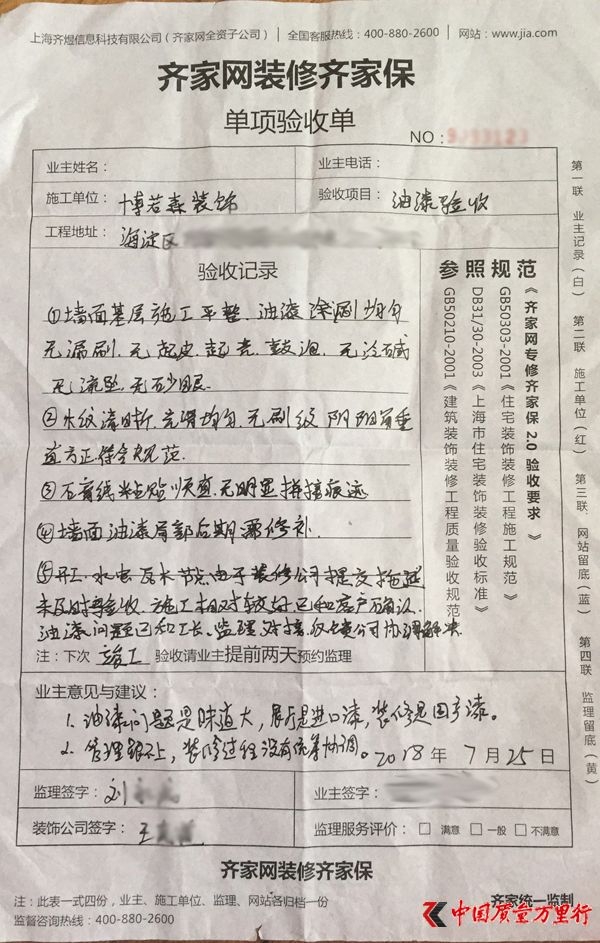 上海齐煜信息科技有限公司（齐家网全资子公司） | 全国客服热线：400-880-2600 | 网站：www.jia.com
齐家网装修齐家保
单项验收单
NO：
业主姓名：
业主电话：
施工单位：博若森装饰
验收项目：油漆验收
工程地址：海淀区
验收记录
①墙面基层施工平整，油漆涂刷均匀
无漏刷，无起皮，起壳，鼓泡，无泛碱
无流坠，无砂眼
②水纹清晰，光滑均匀，无刷纹 阴阳角垂
直方正符合规范
③石膏线粘贴顺直，无明显拼接痕迹
④墙面油漆局部后期需修补
⑤开工、水电、瓦木节点，由于装修公司提交拖延
未及时验收，施工相对较好已和客户确认，
油漆问题已和工长、监理对接，
注：下次 竣工 验收请业主提前两天预约监理
参照规范
《齐家网专修齐家保2.0验收要求》
GB50303-2001《住宅装饰装修工程施工规范》
DB31/30-2003《上海市住宅装饰装修验收标准》
GB50210-2001《建筑装饰装修工程质量验收规范》
第一联 业主记录（白） 第二联 施工单位（红） 第三联：网站留底（蓝） 第四联 监理留底（黄）
业主意见与建议：
1. 油漆问题是味道大，展厅是进口漆，装修是国产漆。
2. 管理跟不上，装修过程没有统筹协调。2018年7月25日
监理签字：刘
业主签字：
装饰公司签字：王
监理服务评价：□ 满意 □ 一般 □ 不满意
齐家网装修齐家保
注：此表一式四份，业主、施工单位、监理、网站各归档一份
监督咨询热线：400-880-2600
齐家统一监制
中国质量万里行